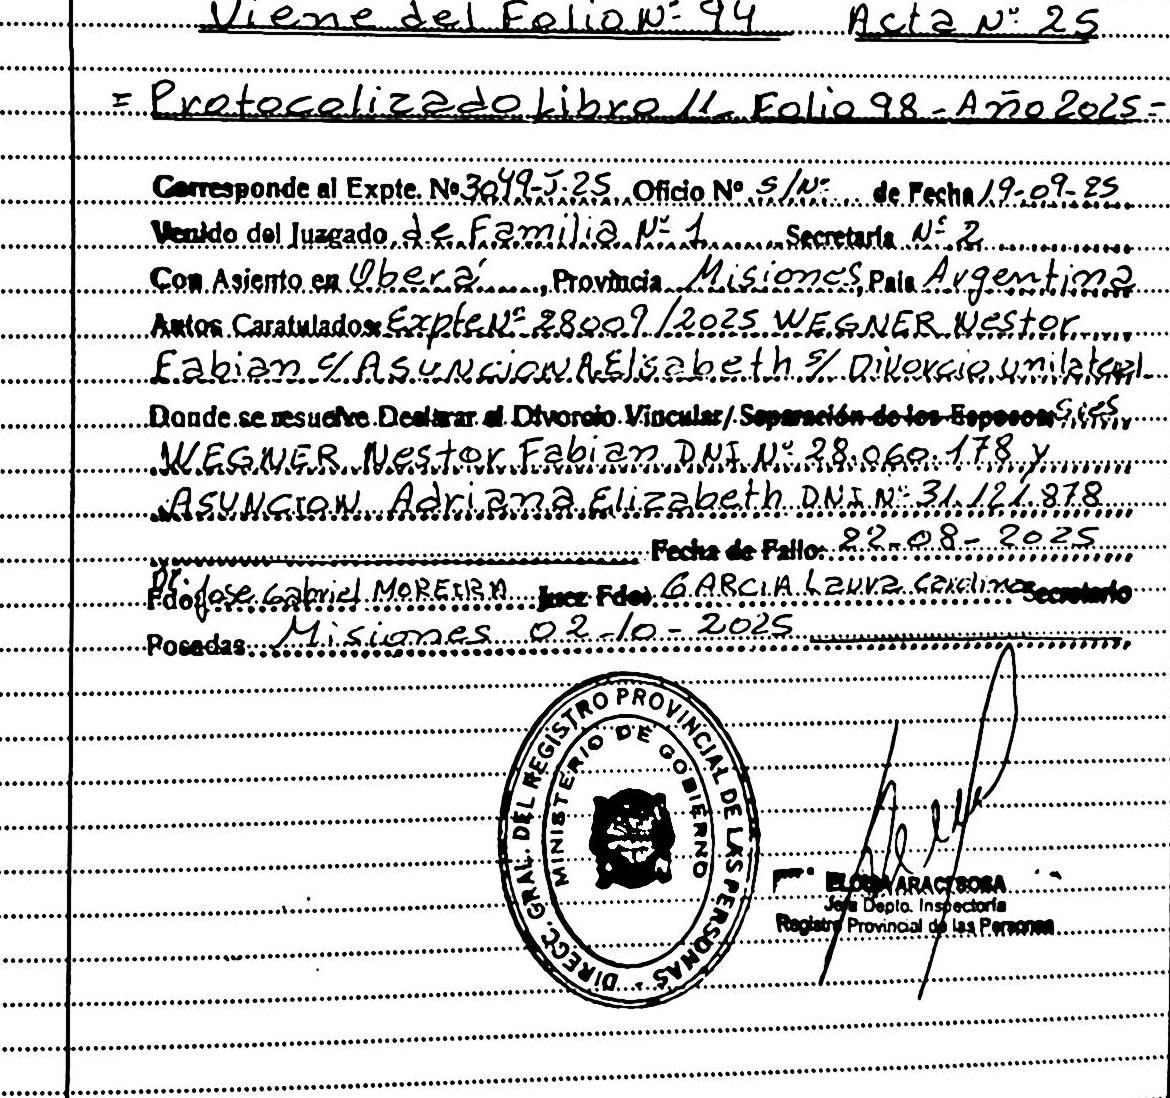 Viene del Folio Nº 94 Acta Nº 25
= Protocolizado Libro 11 Folio 98 - Año 2025 =
Corresponde al Expte. Nº 3049-J-25 Oficio Nº S/Nº de Fecha 19-09-25
Venido del Juzgado de Familia Nº 1 Secretaría Nº 2
Con Asiento en Oberá, Provincia Misiones, País Argentina
Autos Caratulados: Expte Nº 28009/2025 WEGNER Nestor
Fabian c/ ASUNCION A. Elisabeth s/ Divorcio unilateral
Donde se resuelve Declarar el Divorcio Vincular/ Separación de los Esposos:
WEGNER Nestor Fabian DNI Nº 28.060.178 y
ASUNCION Adriana Elizabeth DNI Nº 31.121.878
Fecha de Fallo: 22-08-2025
Fdo: Dr. Jose Gabriel MOREIRA Juez Fdo: GARCIA Laura Carolina Secretario
Posadas. Misiones 02-10-2025
DIRECC. GRAL. DEL REGISTRO PROVINCIAL DE LAS PERSONAS
MINISTERIO DE GOBIERNO
ARACY SOSA
Jefa Depto. Inspectoría
Registro Provincial de las Personas